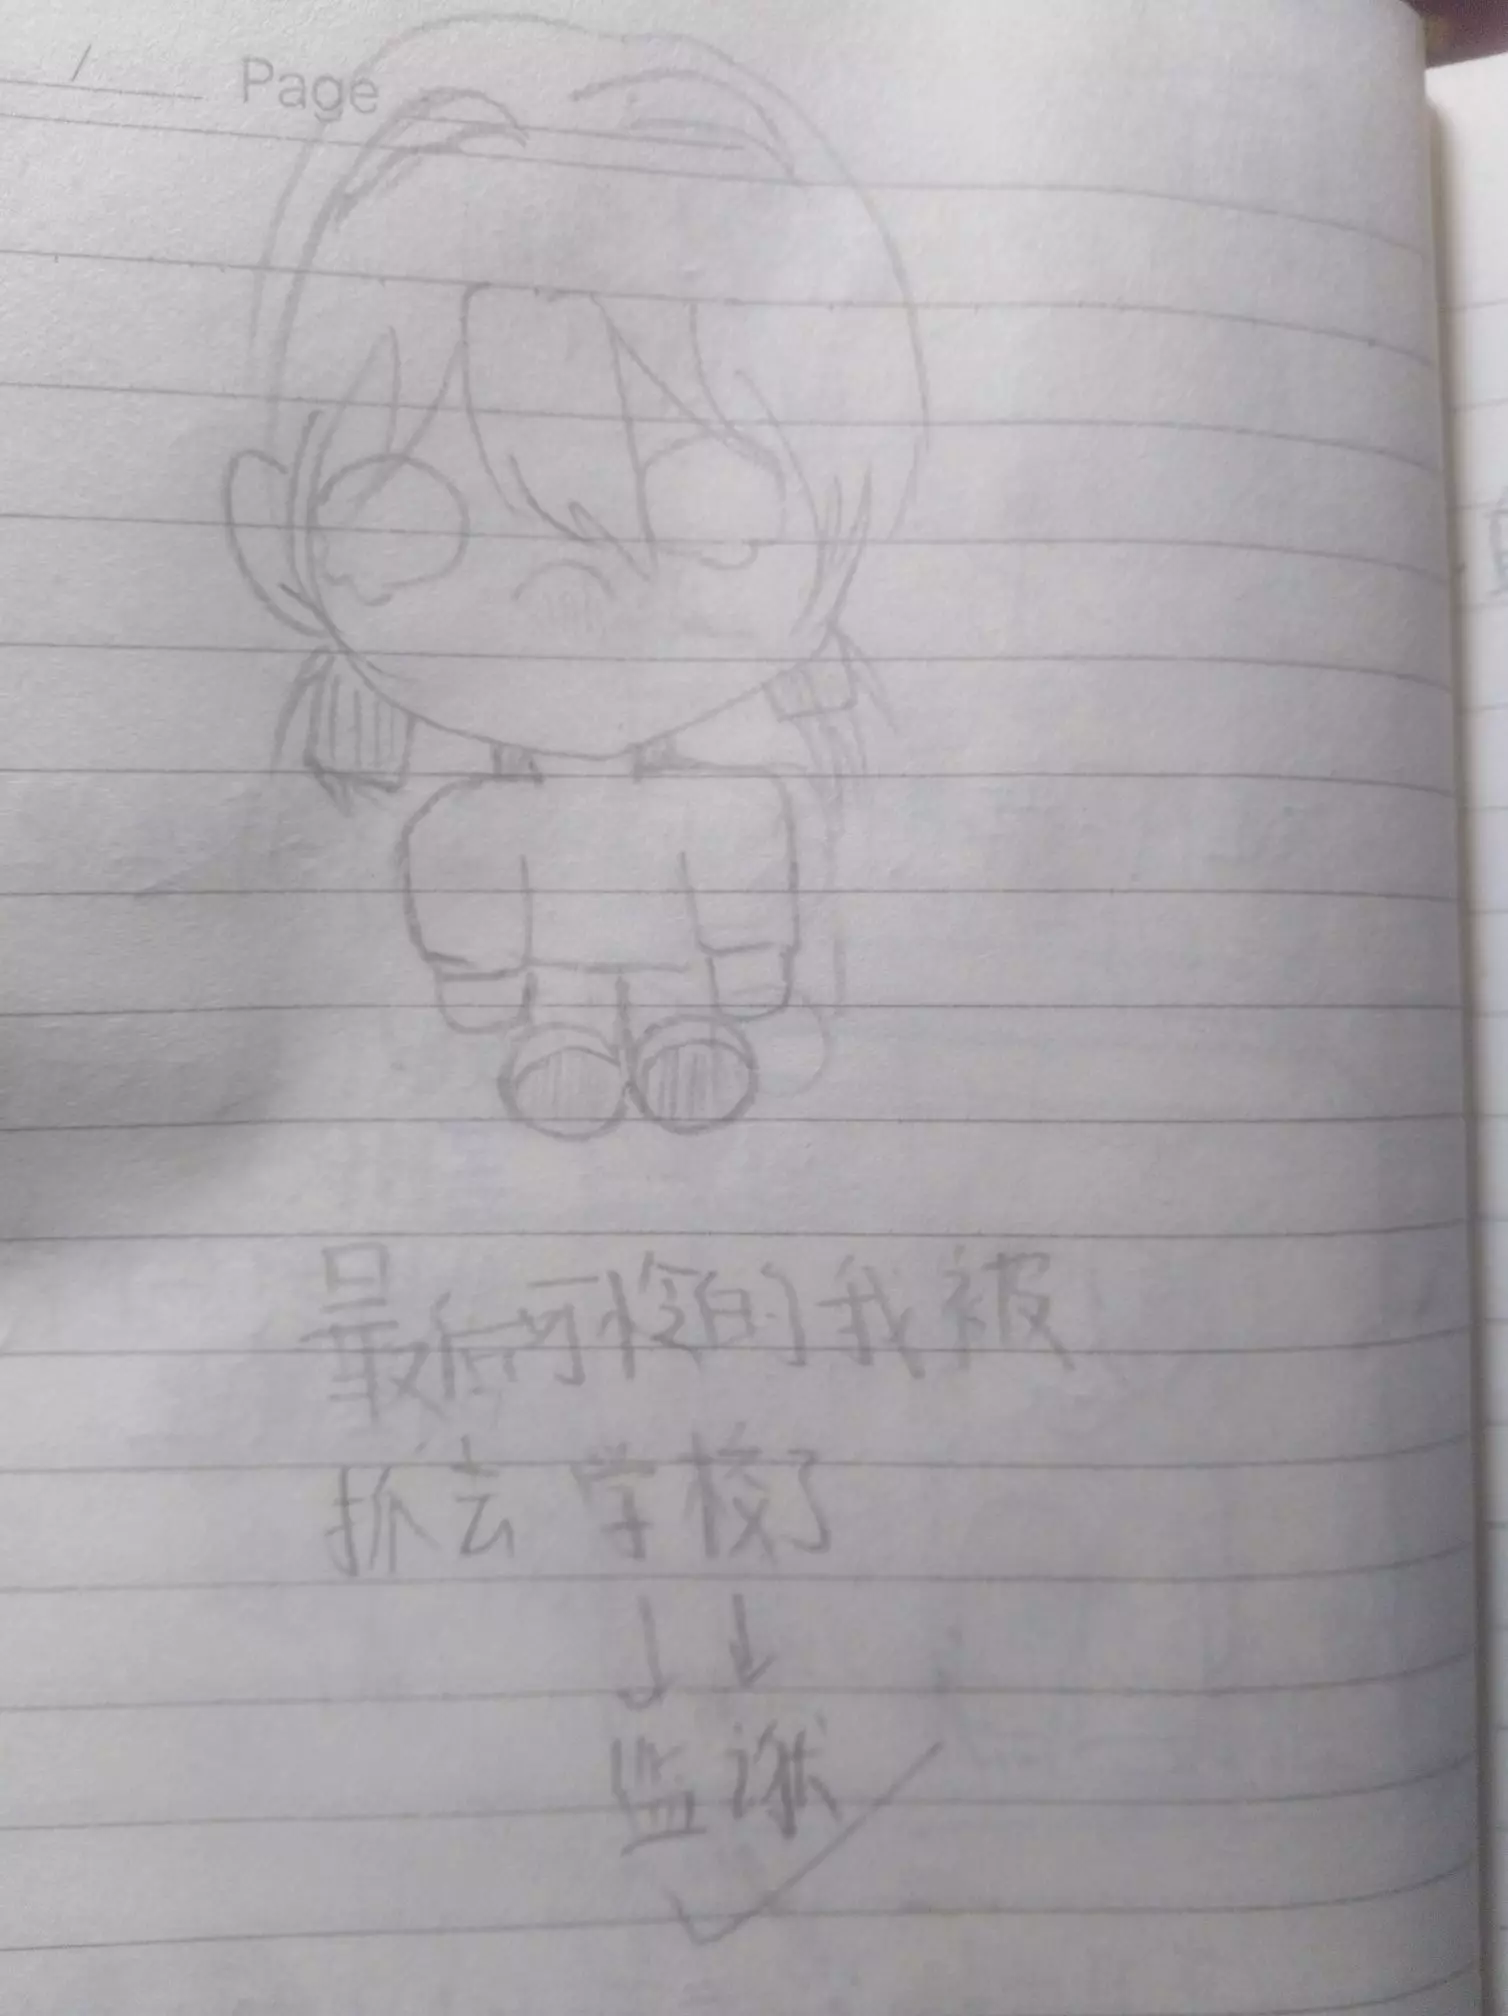 Page
最后可怜的我被
抓去学校了
↓↓
监狱